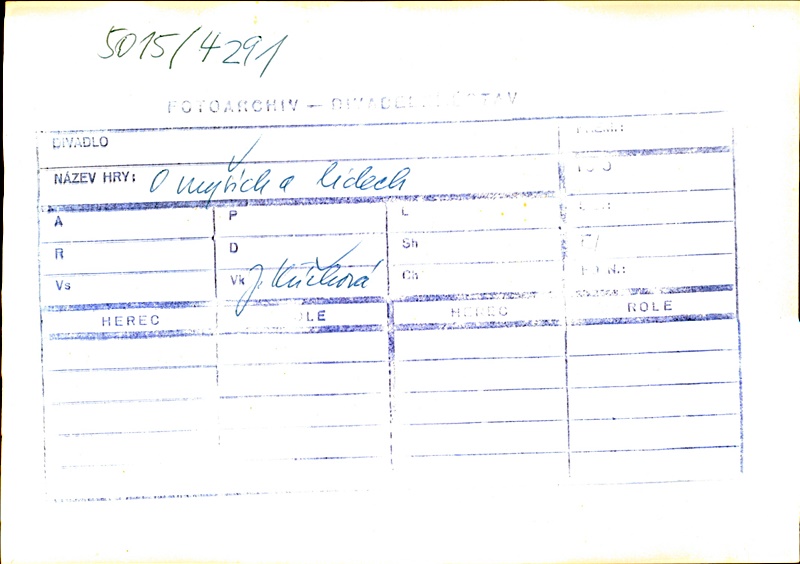 5015/4291
FOTOARCHIV — DIVADELNÍ ÚSTAV
DIVADLO
NÁZEV HRY: O myších a lidech
A P L
R D Sh
Vs Vk J. Ch
HEREC ROLE HEREC ROLE